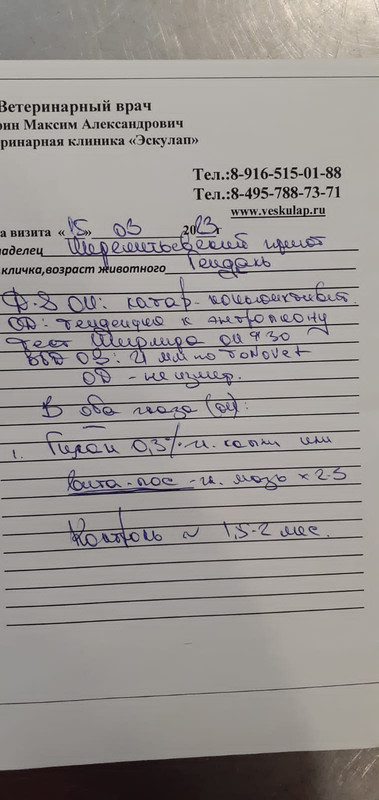 Ветеринарный врач
рин Максим Александрович
еринарная клиника «Эскулап»
Тел.:8-916-515-01-88
Тел.:8-495-788-73-71
www.veskulap.ru
а визита «15» 03 2023г
аделец Шереметьевский приют
кличка,возраст животного
Д-S OU: катар. конъюнктивит.
OD: тенденция к энтропиону
Тест Ширмера OU 30
ВГД OS: 21 мм по TonoVet
OD - не измер.
В оба глаза (OU):
1. 0,3% - гл. капли или
Вита-пос - гл. мазь х 2-3
Контроль ~ 1,5-2 мес.